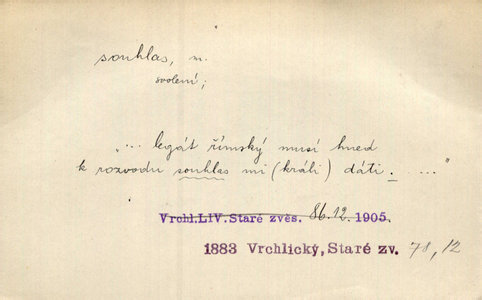 souhlas, m.
svolení;
„... legát římský musí hned
k rozvodu souhlas mi (králi) dáti. ....."
Vrchl. LIV. Staré zvěs. 86.12. 1905.
1883 Vrchlický, Staré zv. 78, 12